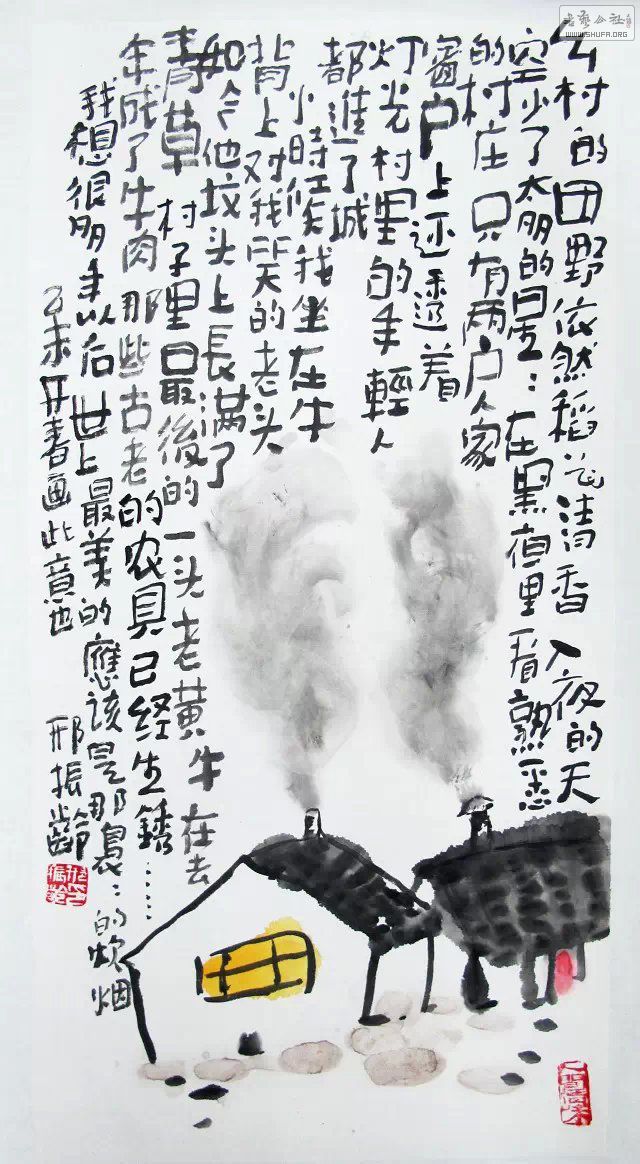 乡村的田野依然稻花清香 入夜的天
空少了太多的星：在黑夜里看熟悉
的村庄 只有两户人家
窗户上还透着
灯光村里的年輕人
都進了城
小時候我坐在牛
背上对我笑的老头
如今他坟头上長满了
青草 村子里最後的一头老黄牛在去
年成了牛肉 那些古老的农具已经生銹……
我想很多年以后 世上最美的應该是那袅：的炊烟
乙未开春画此意也 邢振齡
书艺公社
WWW.SHUFA.ORG